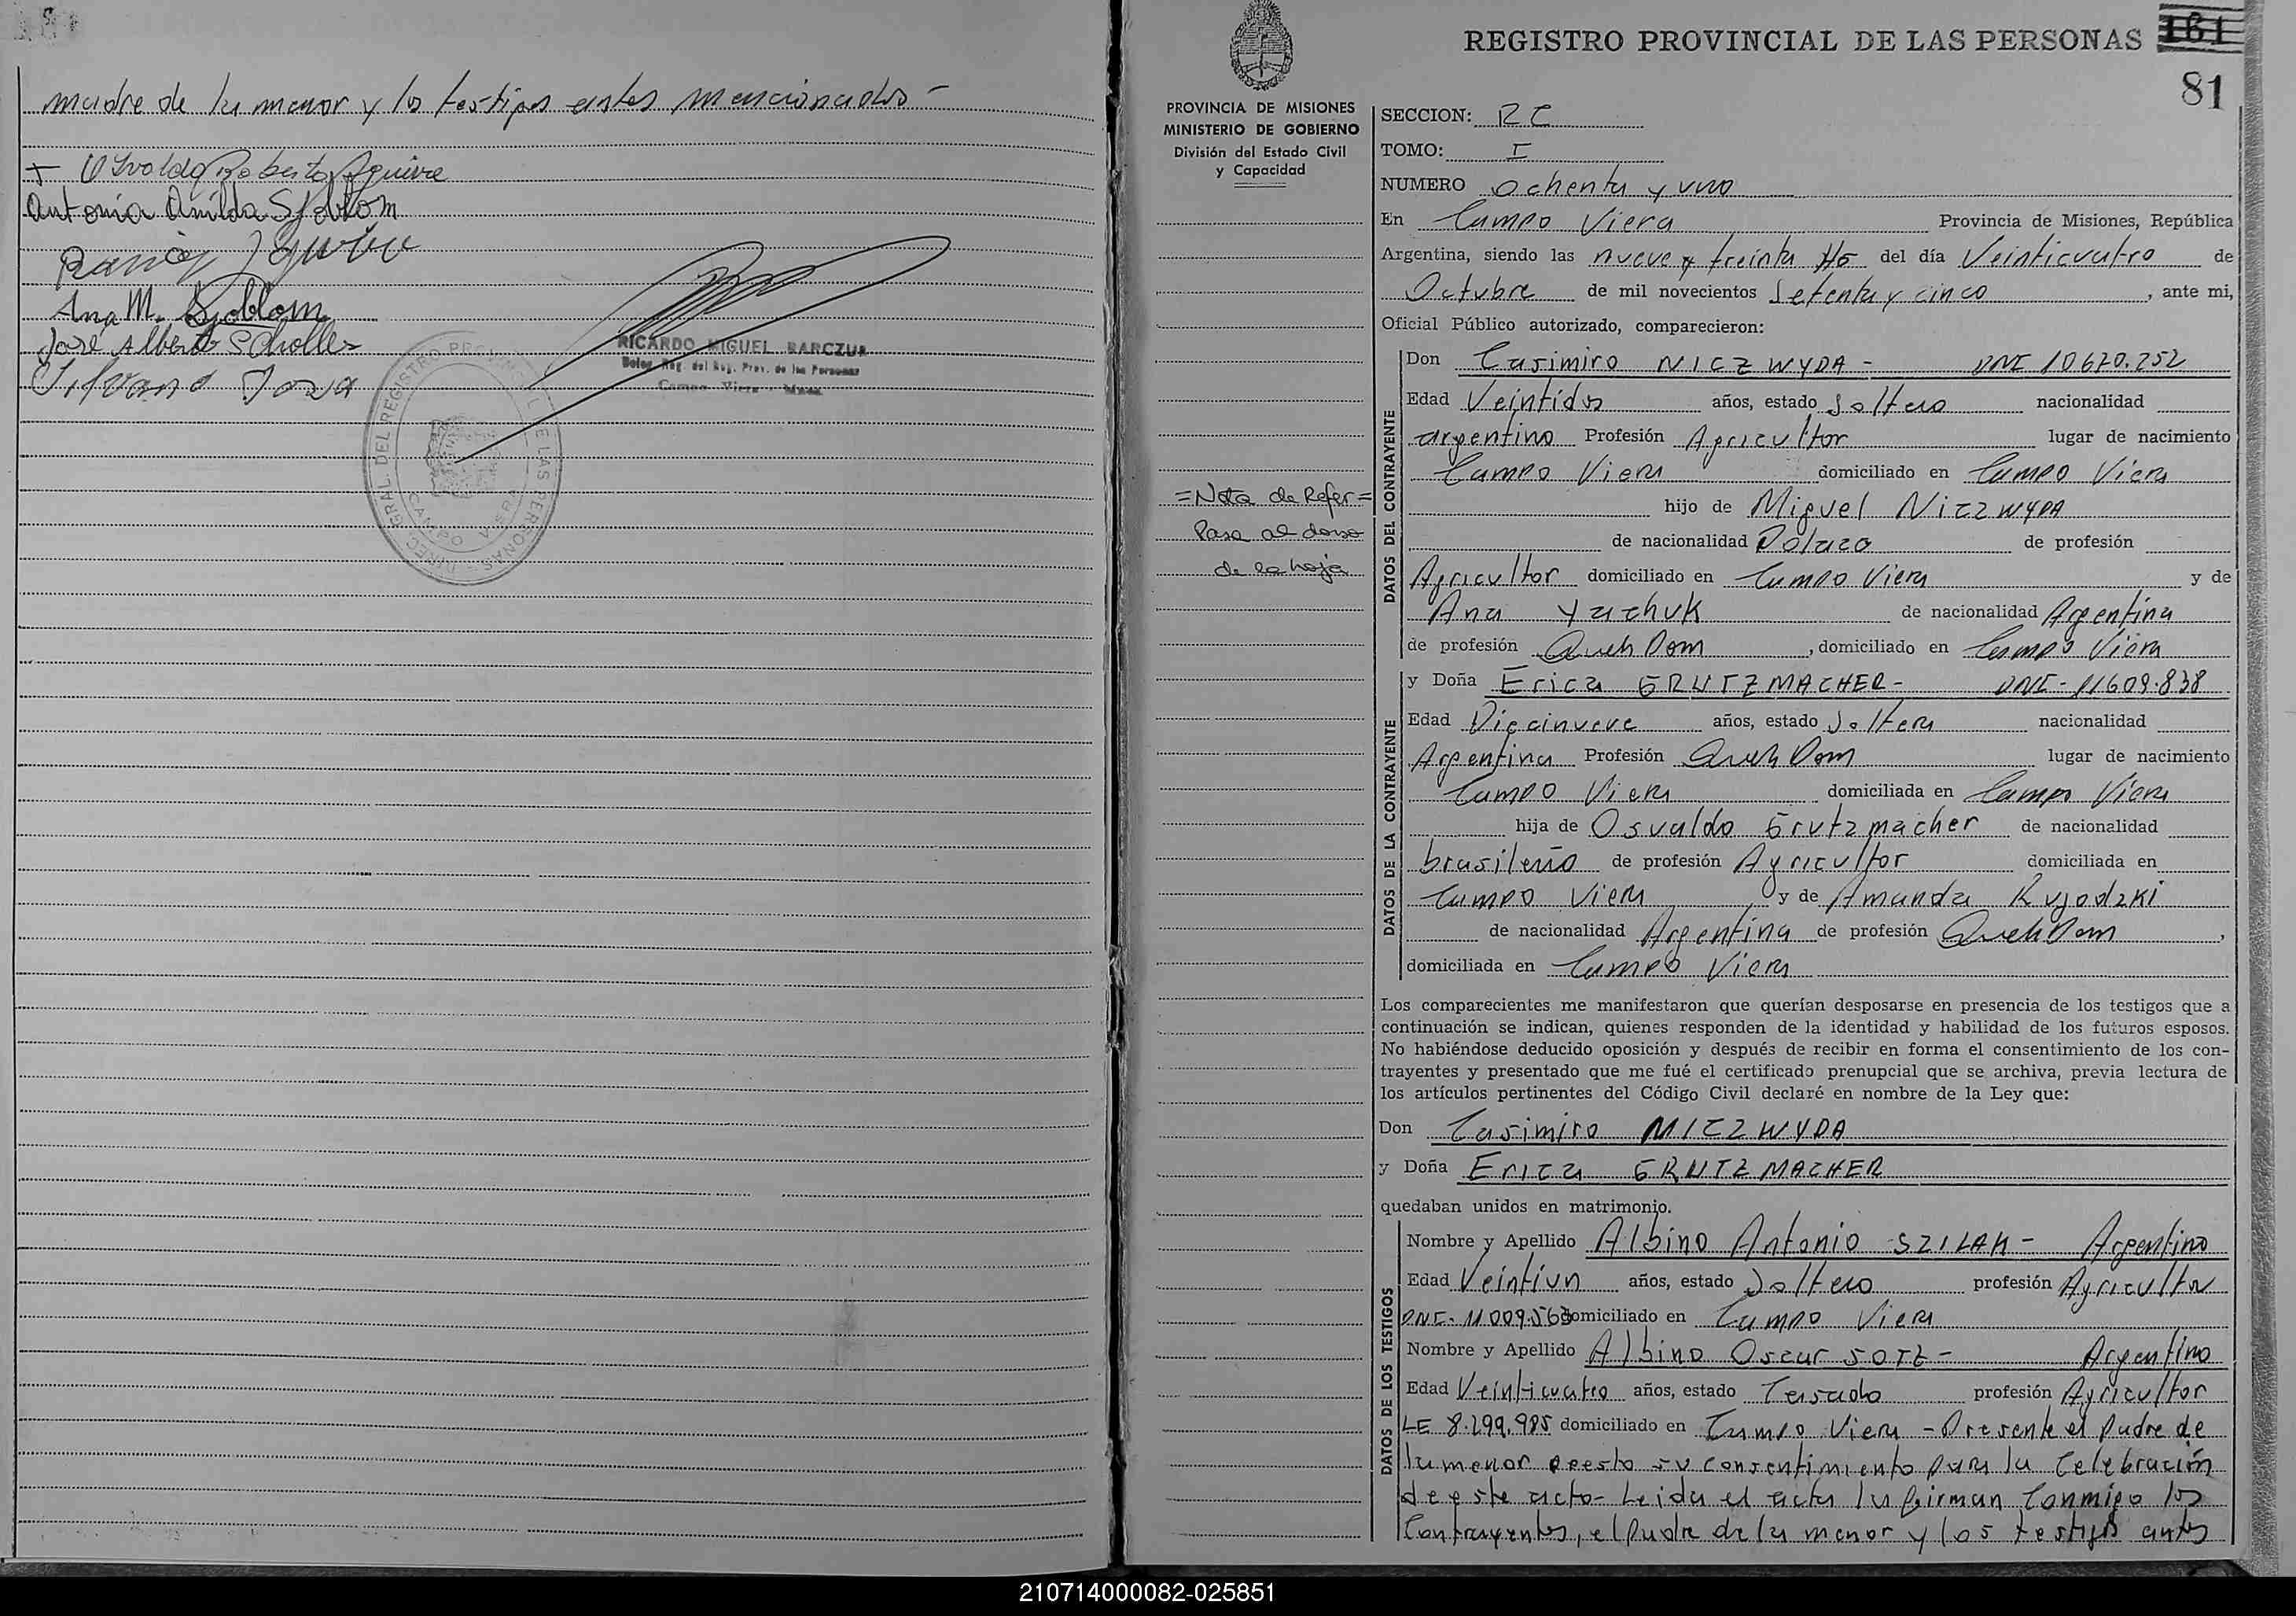 madre de la menor y los testigos antes mencionados -
+ Osvaldo Roberto Aguirre
Antonia Anilda Sjoblom
Ana M. Sjoblom
José Alberto Scholles
RICARDO MIGUEL BARCZUK
Deleg. Reg. del Reg. Prov. de las Personas
Campo Viera - Mnes.
DIREC. GRAL. DEL REGISTRO PROVINCIAL DE LAS PERSONAS
CAMPO VIERA
REGISTRO PROVINCIAL DE LAS PERSONAS 161
81
PROVINCIA DE MISIONES
MINISTERIO DE GOBIERNO
División del Estado Civil
y Capacidad
= Nota de Refer =
Pasa al dorso
de la hoja
SECCION: RC
TOMO: I
NUMERO Ochenta y uno
En Campo Viera Provincia de Misiones, República
Argentina, siendo las nueve y treinta Hs del día Veinticuatro de
Octubre de mil novecientos Setenta y cinco, ante mi,
Oficial Público autorizado, comparecieron:
DATOS DEL CONTRAYENTE
Don Casimiro NICZWYDA - DNI 10.670.252
Edad Veintidos años, estado Soltero nacionalidad
argentino Profesión Agricultor lugar de nacimiento
Campo Viera domiciliado en Campo Viera
hijo de Miguel Niczwyda
de nacionalidad Polaco de profesión
Agricultor domiciliado en Campo Viera y de
Ana Yachuk de nacionalidad Argentina
de profesión Queh Dom, domiciliado en Campo Viera
DATOS DE LA CONTRAYENTE
y Doña Erica GRUTZMACHER - DNI - 11.609.838
Edad Diecinueve años, estado Soltera nacionalidad
Argentina Profesión Queh Dom lugar de nacimiento
Campo Viera domiciliada en Campo Viera
hija de Osvaldo Grutzmacher de nacionalidad
brasileño de profesión Agricultor domiciliada en
Campo Viera y de Amanda Kujodzki
de nacionalidad Argentina de profesión Queh Dom,
domiciliada en Campo Viera
Los comparecientes me manifestaron que querían desposarse en presencia de los testigos que a
continuación se indican, quienes responden de la identidad y habilidad de los futuros esposos.
No habiéndose deducido oposición y después de recibir en forma el consentimiento de los con-
trayentes y presentado que me fué el certificado prenupcial que se archiva, previa lectura de
los artículos pertinentes del Código Civil declaré en nombre de la Ley que:
Don Casimiro NICZWYDA
y Doña Erica GRUTZMACHER
quedaban unidos en matrimonio.
DATOS DE LOS TESTIGOS
Nombre y Apellido Albino Antonio SZILAK - Argentino
Edad Veintiun años, estado Soltero profesión Agricultor
DNI - 11.009.563 domiciliado en Campo Viera
Nombre y Apellido Albino Oscar SOTZ - Argentino
Edad Veinticuatro años, estado Casado profesión Agricultor
LE 8.299.985 domiciliado en Campo Viera - Presente el Padre de
la menor presto su consentimiento para la Celebración
de este acto - Leida el acta la firman Conmigo los
Contrayentes, el Padre de la menor y los testigos antes
210714000082-025851